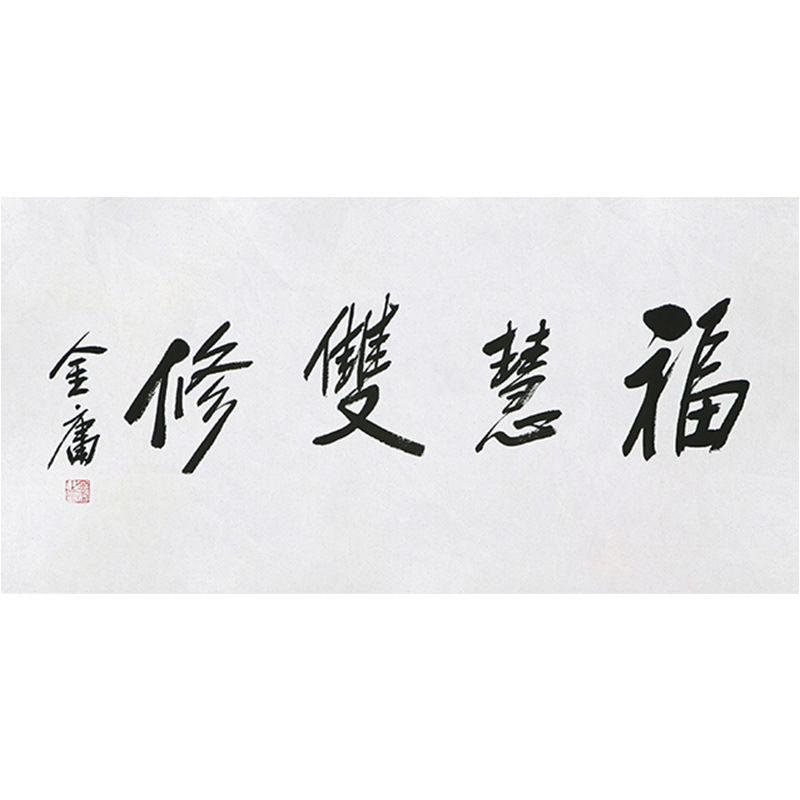 福慧雙修
金庸